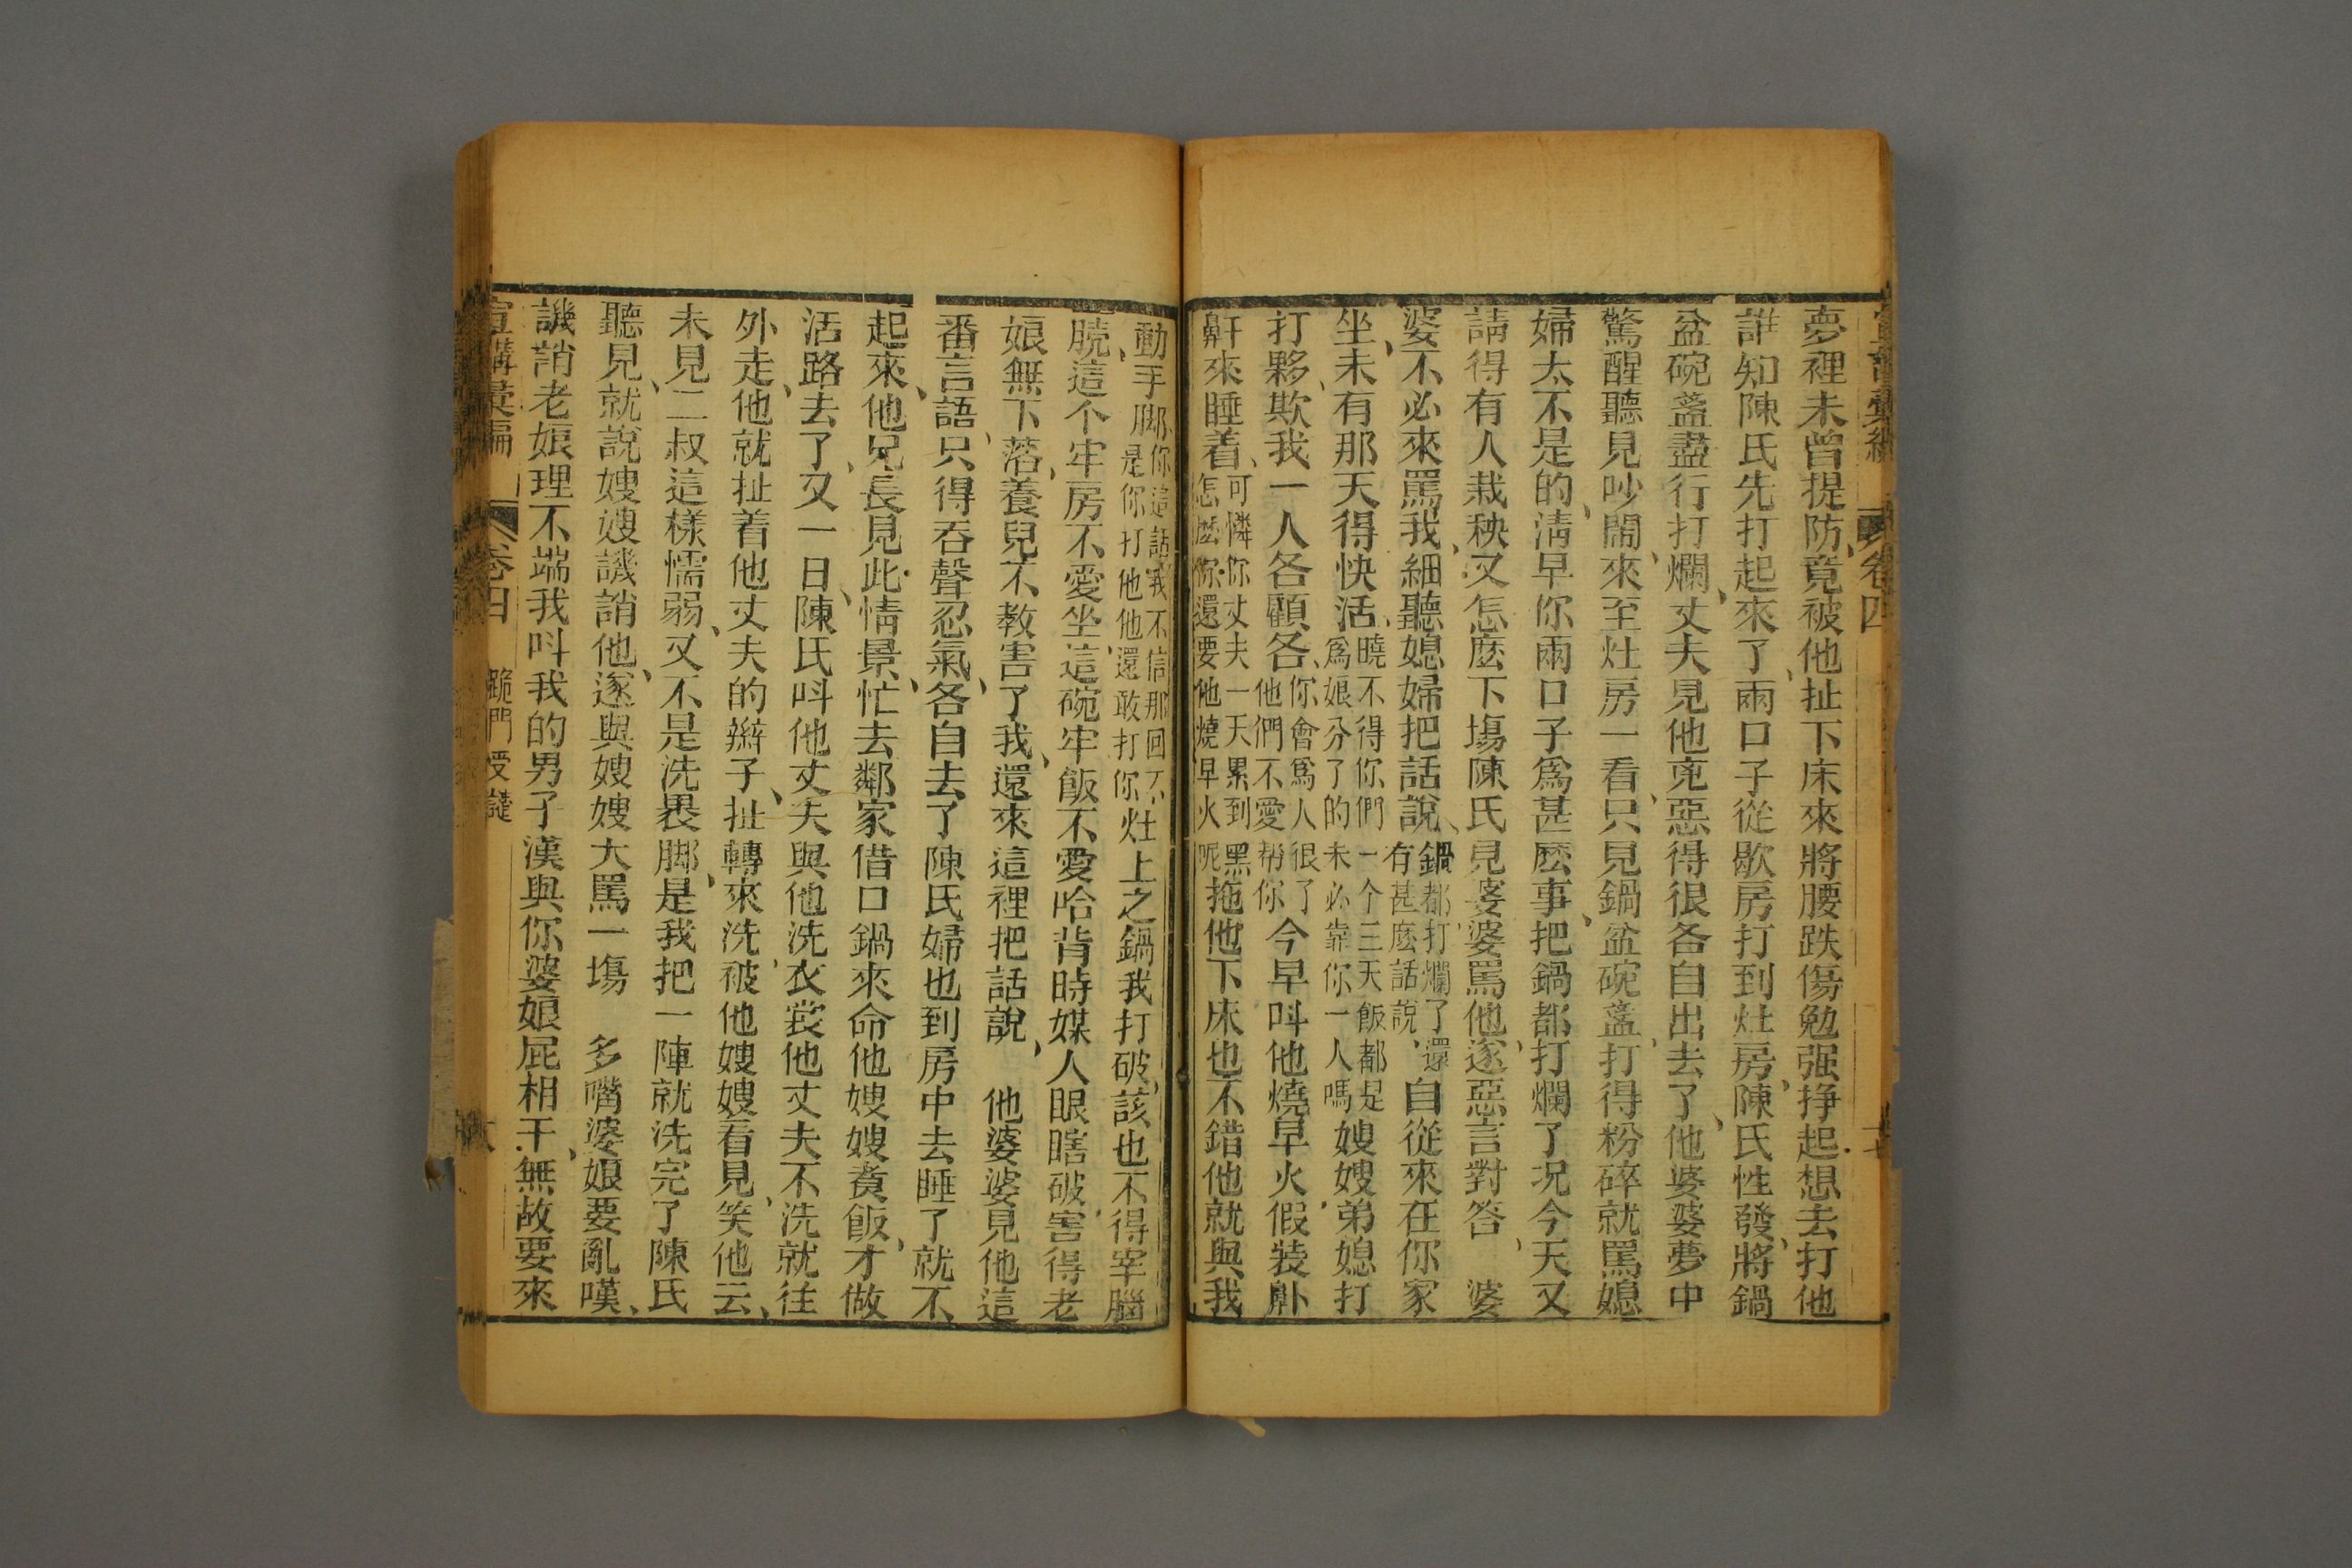 宣講彙編 卷四
夢裡未曾提防、竟被他扯下床來將腰跌傷勉强挣起想去打他
誰知陳氏先打起來了、兩口子從歇房打到灶房、陳氏性發、將鍋
盆碗盞盡行打爛、丈夫見他兇惡得很各自出去了、他婆婆夢中
驚醒聽見吵鬧、來至灶房一看、只見鍋盆碗盞、打得粉碎就罵媳
婦太不是的、淸早你兩口子爲甚麽事、把鍋都打爛了况今天又
請得有人栽秧、又怎麽下塲陳氏見婆婆罵他、遂惡言對答、 婆
婆不必來罵我、細聽媳婦把話說、鍋都打爛了還有甚麽話說、自從來在你家
坐、未有那天得快活、曉不得你們一个三天飯都是爲娘分了的未必靠你一人嗎嫂嫂弟媳打
打夥、欺我一人各顧各、你會爲人很了他們不愛幇你今早呌他燒早火、假裝鼾
鼾來睡着、可憐你丈夫一天累到黑怎麽你還要他燒早火呢拖他下床也不錯他就與我
動手脚你這話我不信那回不是你打他他還敢打你灶上之鍋我打破、該也不得宰腦
膮、這个牢房不愛坐、這碗牢飯不愛哈背時媒人眼瞎破、害得老
娘無下落、養兒不教害了我、還來這裡把話說、 他婆婆見他這
番言語、只得吞聲忍氣、各自去了陳氏婦也到房中去睡了就不
起來、他兄長見此情景、忙去鄰家借口鍋來命他嫂嫂煑飯、才做
活路去了、又一日、陳氏呌他丈夫與他洗衣裳他丈夫不洗就往
外走、他就扯着他丈夫的辮子、扯轉來洗、被他嫂嫂看見、笑他云、
未見二叔這樣懦弱、又不是洗畏脚、是我把一陣就洗完了陳氏
聽見、就說嫂嫂譏誚他、遂與嫂嫂大罵一塲 多嘴婆娘要亂嘆、
譏誚老娘理不端我呌我的男子漢與你婆娘屁相干、無故要來
宣講彙編 卷四 跪門受譴